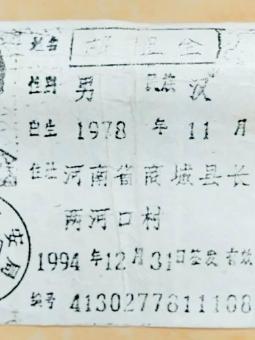 姓名
性别 男 民族 汉
出生 1978 年 11 月
住址 河南省商城县长
两河口村
1994 年 12 月 31 日签发 有效
编号 41302778111108
安局